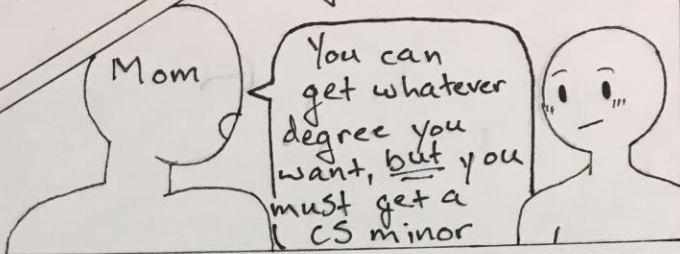 Mom
You can
get whatever
degree you
want, but you
must get a
CS minor